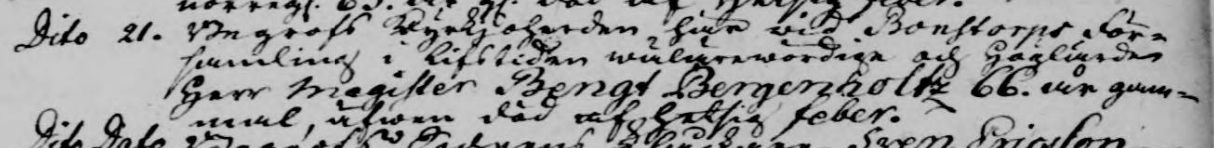 Dito 21. Begrofs Kyrkjoherden här wid Bonstorps För=
samling i Lifstiden wälärewördige och Höglärde
Herr Magister Bengt Bergenholtz 66. år gam=
mal, äfwen död af hetsig feber.
Dito Dato Begrofs Sven Ericson